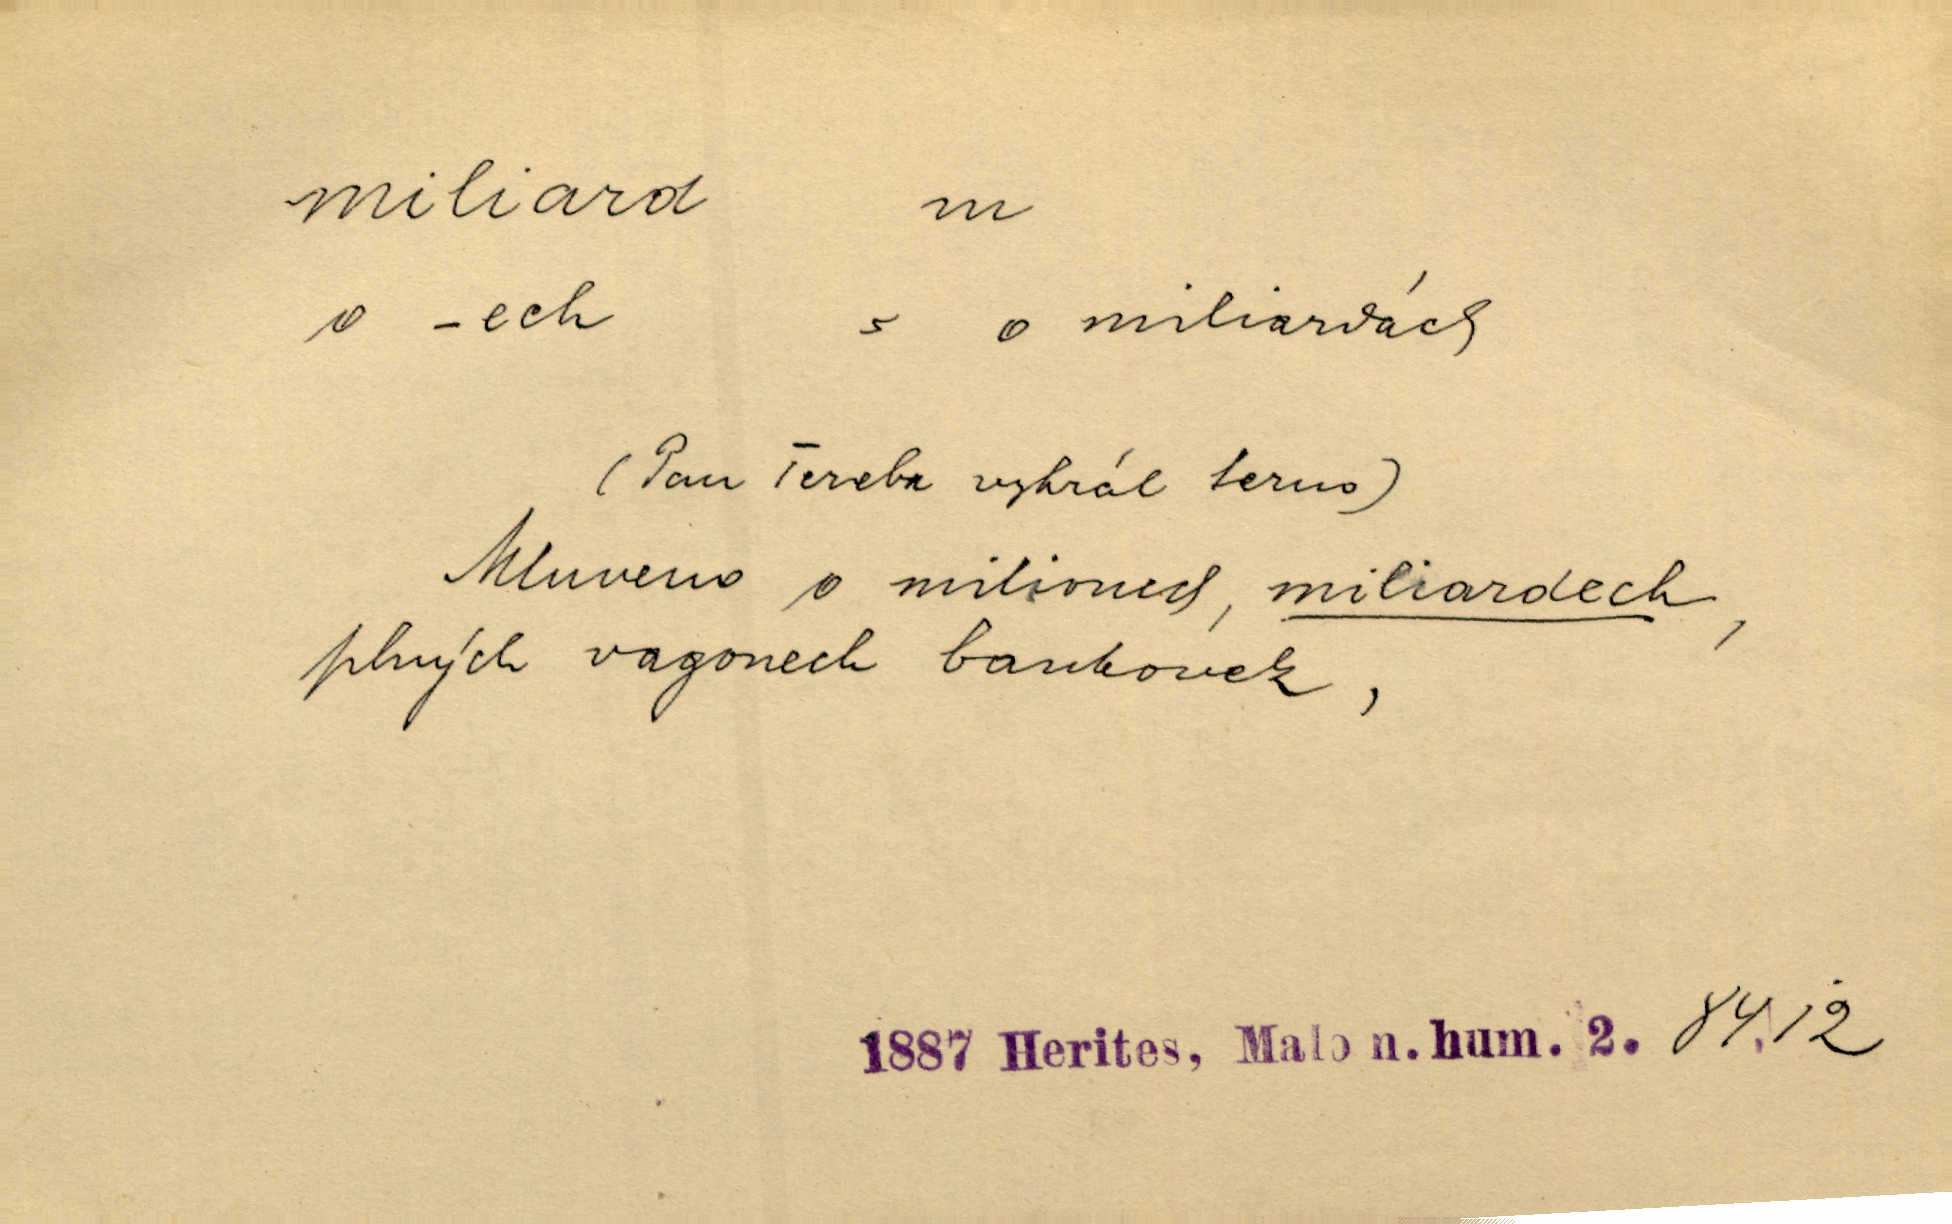 miliard m
o -ech s o miliardách
(Pan Tereba vyhrál terno)
Mluveno o milionech, miliardech,
plných vagonech bankovek,
1887 Herites, Malo n. hum. 2. 84,12